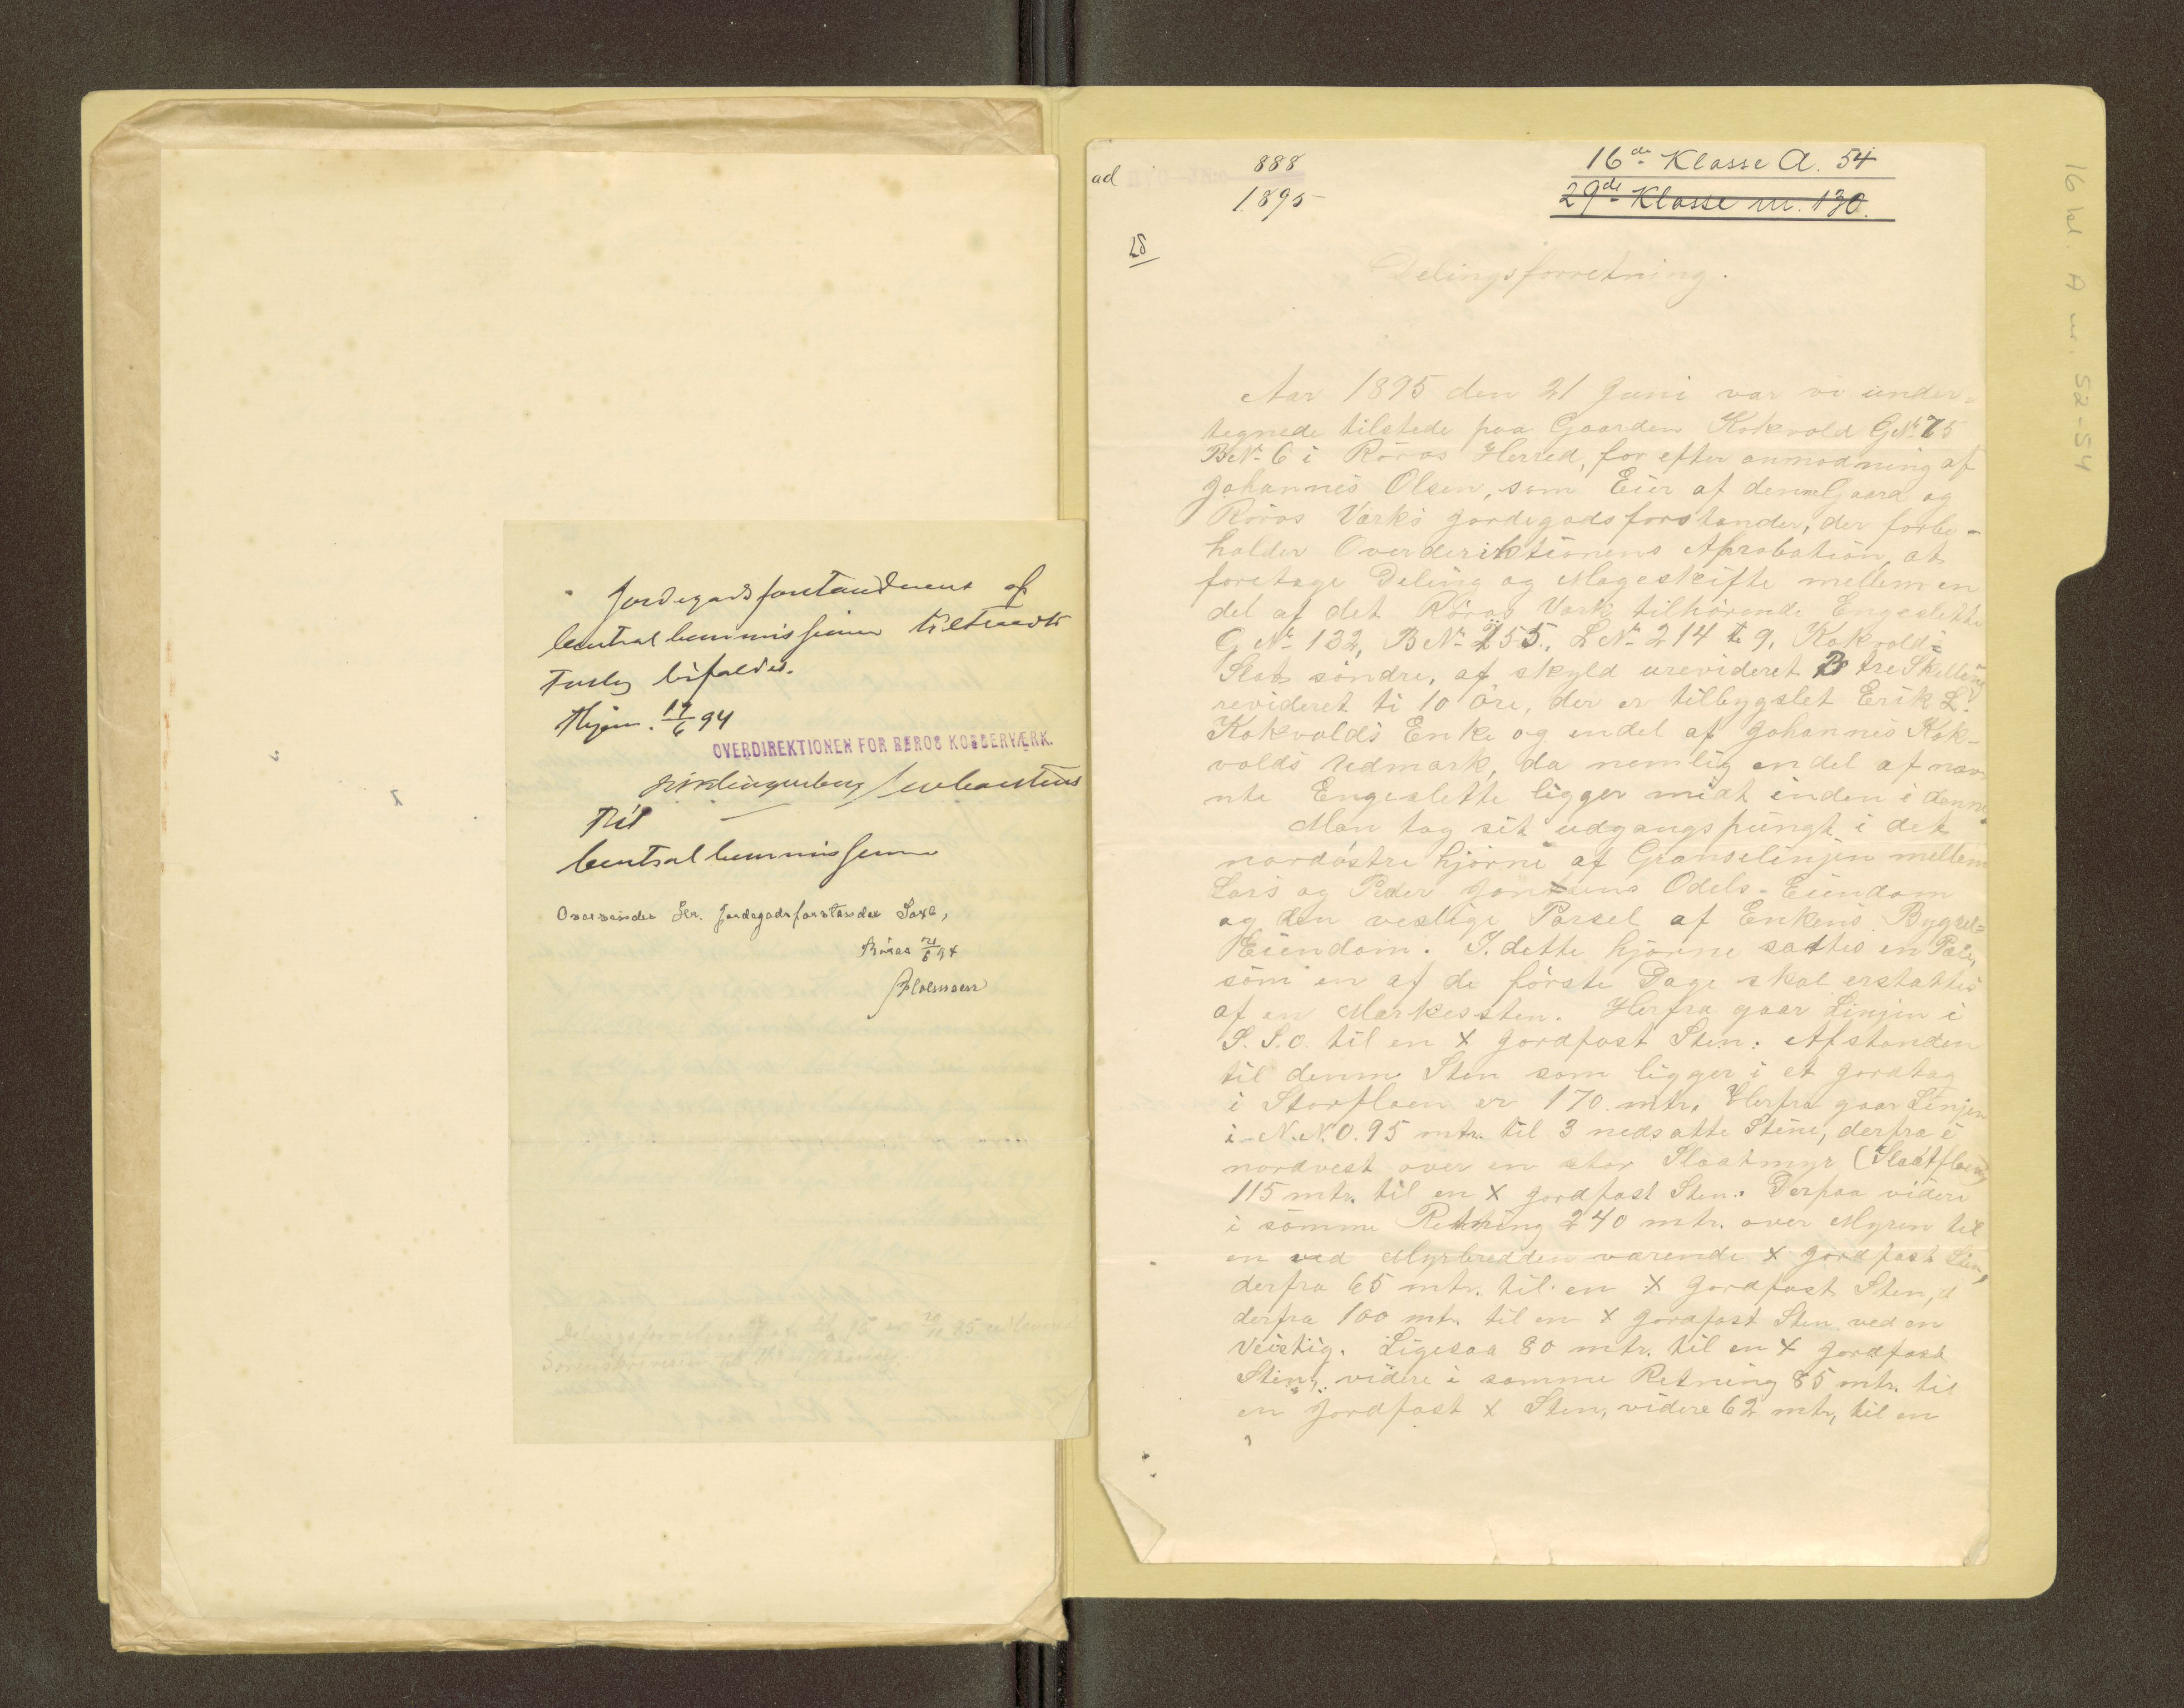 Jordegodsforstanderens af
Centralkommissionen tiltraadte
Forslag bifaldes.
Thjem. 17/6 94
OVERDIREKTIONEN FOR RØROS KOBBERVÆRK.
Til
Centralkommissionen
Oversendes Hr. Jordegodsforstander Saxe,
Røros 21/6 94
ad
888
1895
16de Klasse A. 54
29de Klasse nr. 130.
28
Delingsforretning.
Aar 1895 den 21 Juni var vi under-
tegnede tilstede paa Gaarden Kokvold GNr 75
BNr 6 i Röros Herred, for efter anmodning af
Johannes Olsen, som Eier af denne Gaard og
Röros Værks Jordegodsforstander, der forbe-
holder Overderiktionens Aprobation, at
foretage Deling og Mageskifte mellem en
del af det Röros Værk tilhörende Engeslette
G Nr 132, B Nr 155, L Nr 214 9, Kokvold-
Slot söndre, af skyld urevideret tre Skelling
revideret ti 10 Öre, der er tilbygslet Erik L.
Kokvolds Enke og endel af Johannes Kok-
volds Udmark, da nemlig en del af næv-
nte Engeslette ligger midt inden i denne.
Man tog sit udgangspungt i det
nordöstre hjörne af Grænselinjen mellem
Lars og Peder Jonsens Odels-Eiendom
og den vestlige Parsel af Enkens Bygsel-
Eiendom. I dette hjörne sattes en Pæle,
som en af de förste Dage skal erstattes
af en Merkessten. Herfra gaar Linjen i
S. S. O. til en x Jordfast Sten: Afstanden
til denne Sten som ligger i et Jordtag
i Storfloen er 170 mtr. Herfra gaar Linjen
i N. N. O. 95 mtr. til 3 nedsatte Stene, derfra i
nordvest over en stor Slaatmyr (Slaatfloen)
115 mtr. til en x Jordfast Sten. Derpaa videre
i somme Retning 240 mtr. over Myren til
en ved Myrbredden værende x Jordfast Sten,
derfra 65 mtr. til en x Jordfast Sten,
derfra 100 mtr. til en x Jordfast Sten ved en
Veistig. Ligesaa 80 mtr. til en x Jordfast
Sten, videre i somme Retning 85 mtr. til
en Jordfast x Sten, videre 62 mtr, til en
16 kl. A nr. 52-54